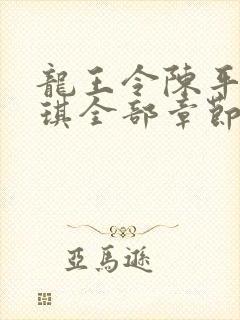 龍王令陳平
琪全部章節
亞馬遜